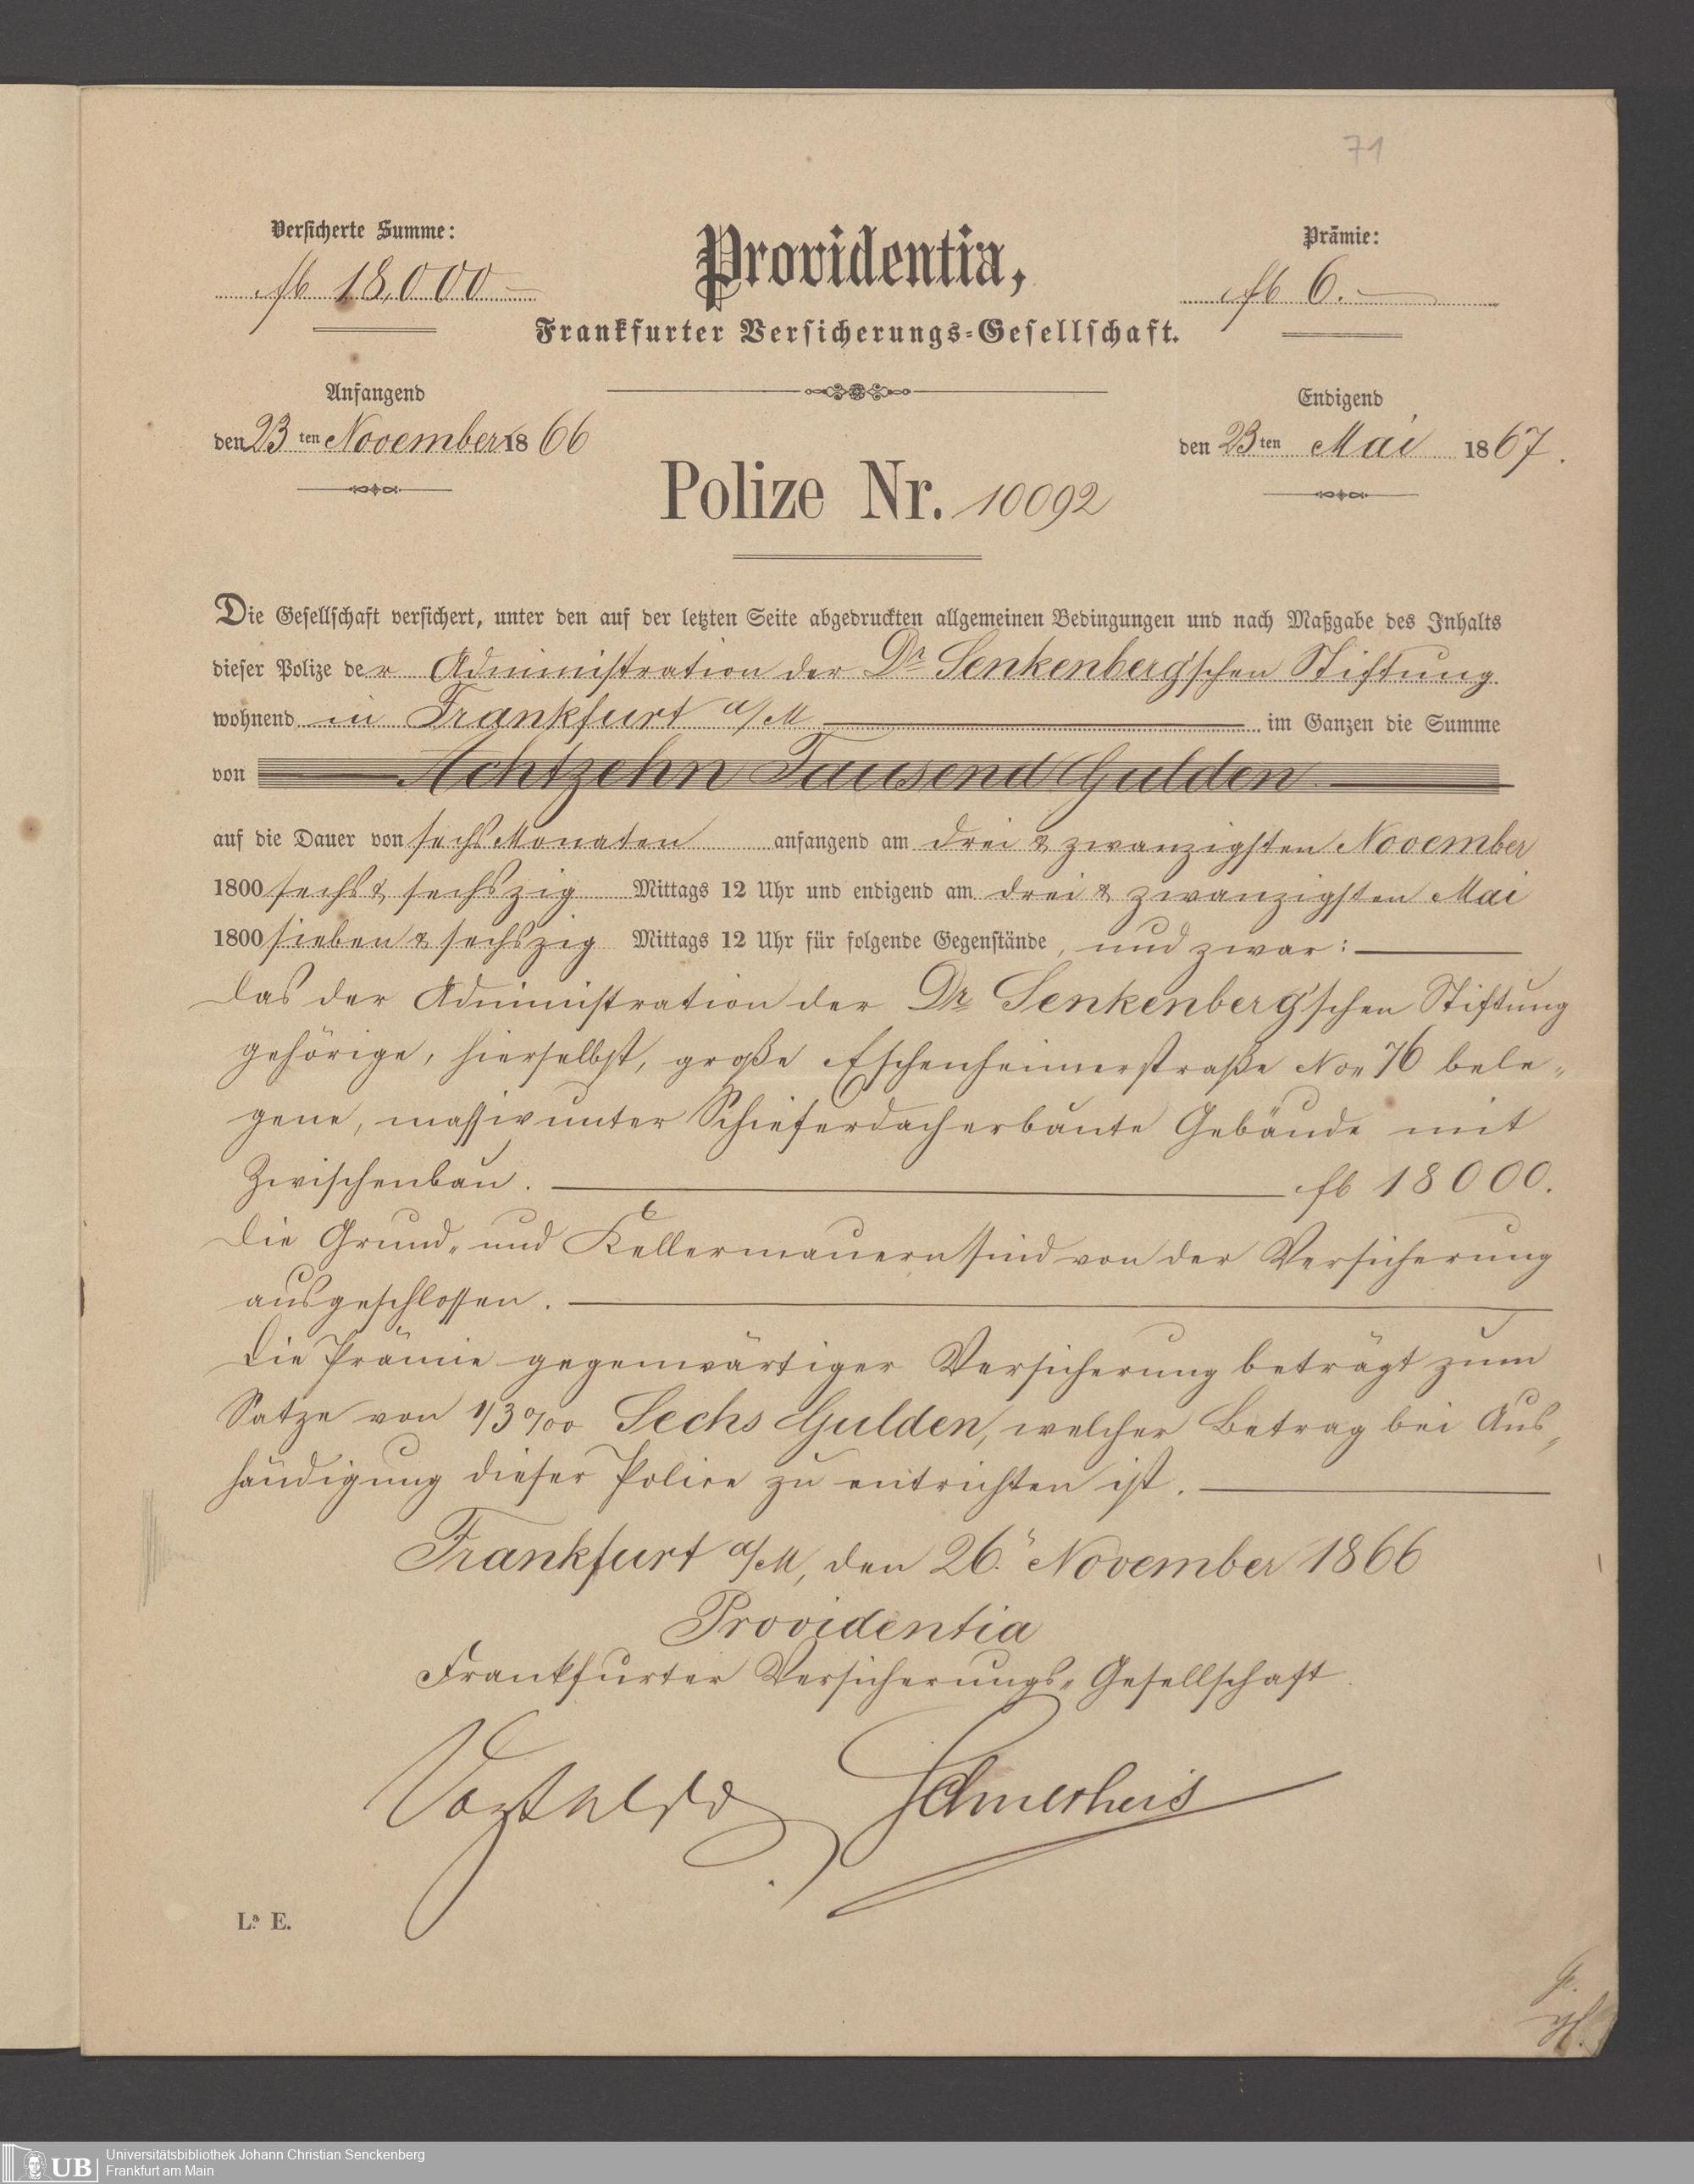 71
Versicherte Summe:
fl 18,000 —
Providentia,
Frankfurter Versicherungs-Gesellschaft.
Prämie:
fl 6. —
Anfangend
den 23ten November 1866
Endigend
den 23ten Mai 1867.
Polize Nr. 10092
Die Gesellschaft versichert, unter den auf der letzten Seite abgedruckten allgemeinen Bedingungen und nach Maßgabe des Inhalts
dieser Polize der Administration der Dr Senkenberg'schen Stiftung
wohnend in Frankfurt a/M im Ganzen die Summe
von Achtzehn Tausend Gulden
auf die Dauer von sechs Monaten anfangend am drei & zwanzigsten November
1800 sechs & sechszig Mittags 12 Uhr und endigend am drei & zwanzigsten Mai
1800 sieben & sechszig Mittags 12 Uhr für folgende Gegenstände, und zwar:
Das der Administration der Dr Senkenberg'schen Stiftung
gehörige, hierselbst, große Eschenheimerstraße No 76 bele-
gene, massiv unter Schieferdach erbaute Gebäude mit
Zwischenbau. fl 18000.
Die Grund- und Kellermauern sind von der Versicherung
ausgeschlossen.
Die Prämie gegenwärtiger Versicherung beträgt zum
Satze von 1/3 ‰ Sechs Gulden, welcher Betrag bei Aus-
händigung dieser Police zu entrichten ist.
Frankfurt a/M, den 26. November 1866
Providentia
Frankfurter Versicherungs-Gesellschaft
La E.
UB
Universitätsbibliothek Johann Christian Senckenberg
Frankfurt am Main